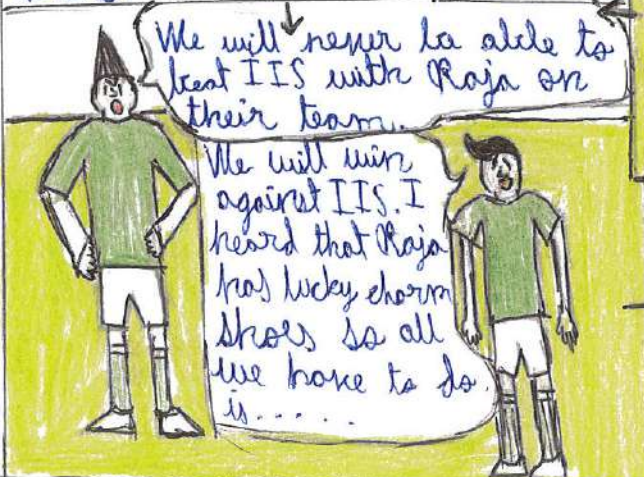 We will never be able to
beat IIS with Raja on
their team.
We will win
against IIS. I
heard that Raja
has lucky charm
shoes so all
we have to do
is.....